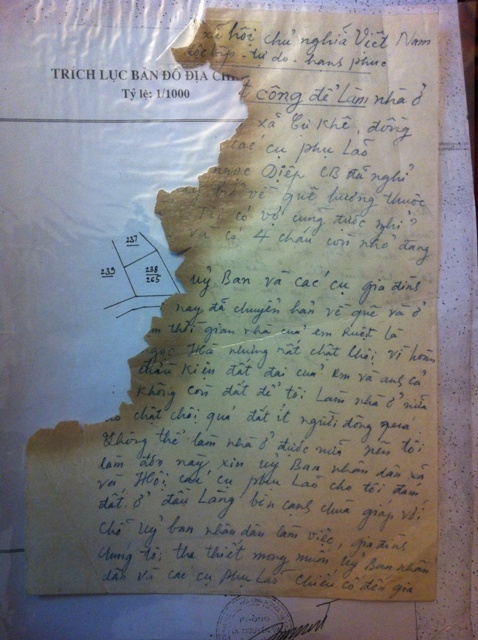 xã hội chủ nghĩa Việt Nam
độc lập - tự do - hanh phúc
TRÍCH LỤC BẢN ĐỒ ĐỊA CH
Tỷ lệ: 1/1000
công để Làm nhà ở
xã Cự Khê, đồng
các cụ phụ Lão
ngọc Diệp CB đã nghỉ
về quê hương thuộc
có vợ cung được nghỉ
và có 4 cháu còn nhỏ đang
237
239
238
265
Uỷ Ban và các cụ gia đình
nay đã chuyển hẳn về quê và ở
thời gian nhà của em Ruột là
Hà nhưng rất chật chội vì hoàn
Kiện đất đai của em và anh cả
không còn đất để tôi Làm nhà ở nữa
chật chội quá đất ít người đông qua
không thể làm nhà ở được nữa nên tôi
làm đơn này xin uỷ Ban nhân dân xã
với Hội các cụ phụ Lão cho tôi đám
đất ở đầu Làng bên cạnh chùa giáp với
chỗ Uỷ ban nhân dân làm việc, gia đình
chung tôi tha thiết mong muốn Uỷ Ban nhân
dân và các cụ phụ Lão chiếu cố đến gia